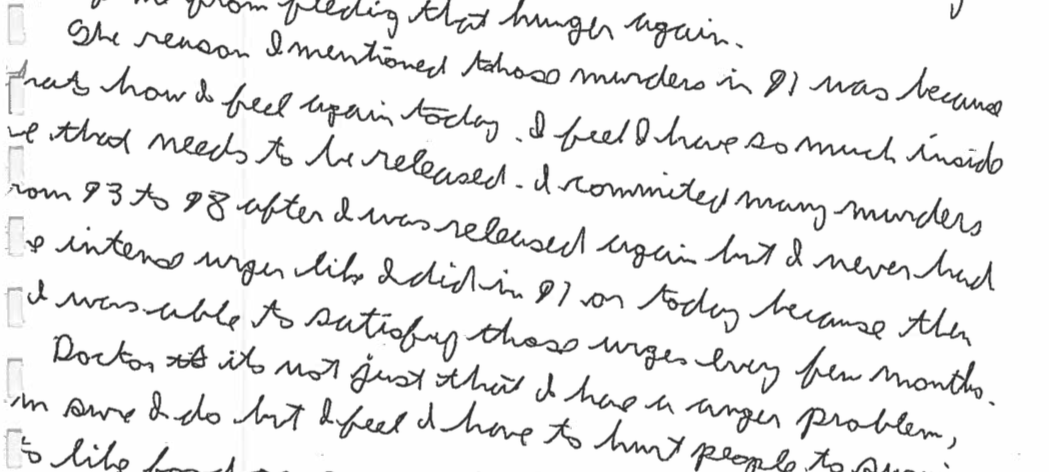 from feeding that hunger again.
The reason I mentioned those murders in 91 was because
thats how I feel again today. I feel I have so much inside
me that needs to be released. I commited many murders
rom 93 to 98 after I was released again but I never had
intense urges like I did in 91 or today because then
I was able to satisfy those urges every few months.
Doctor its not just that I have a anger problem,
Im sure I do but I feel I have to hurt people to
to like food